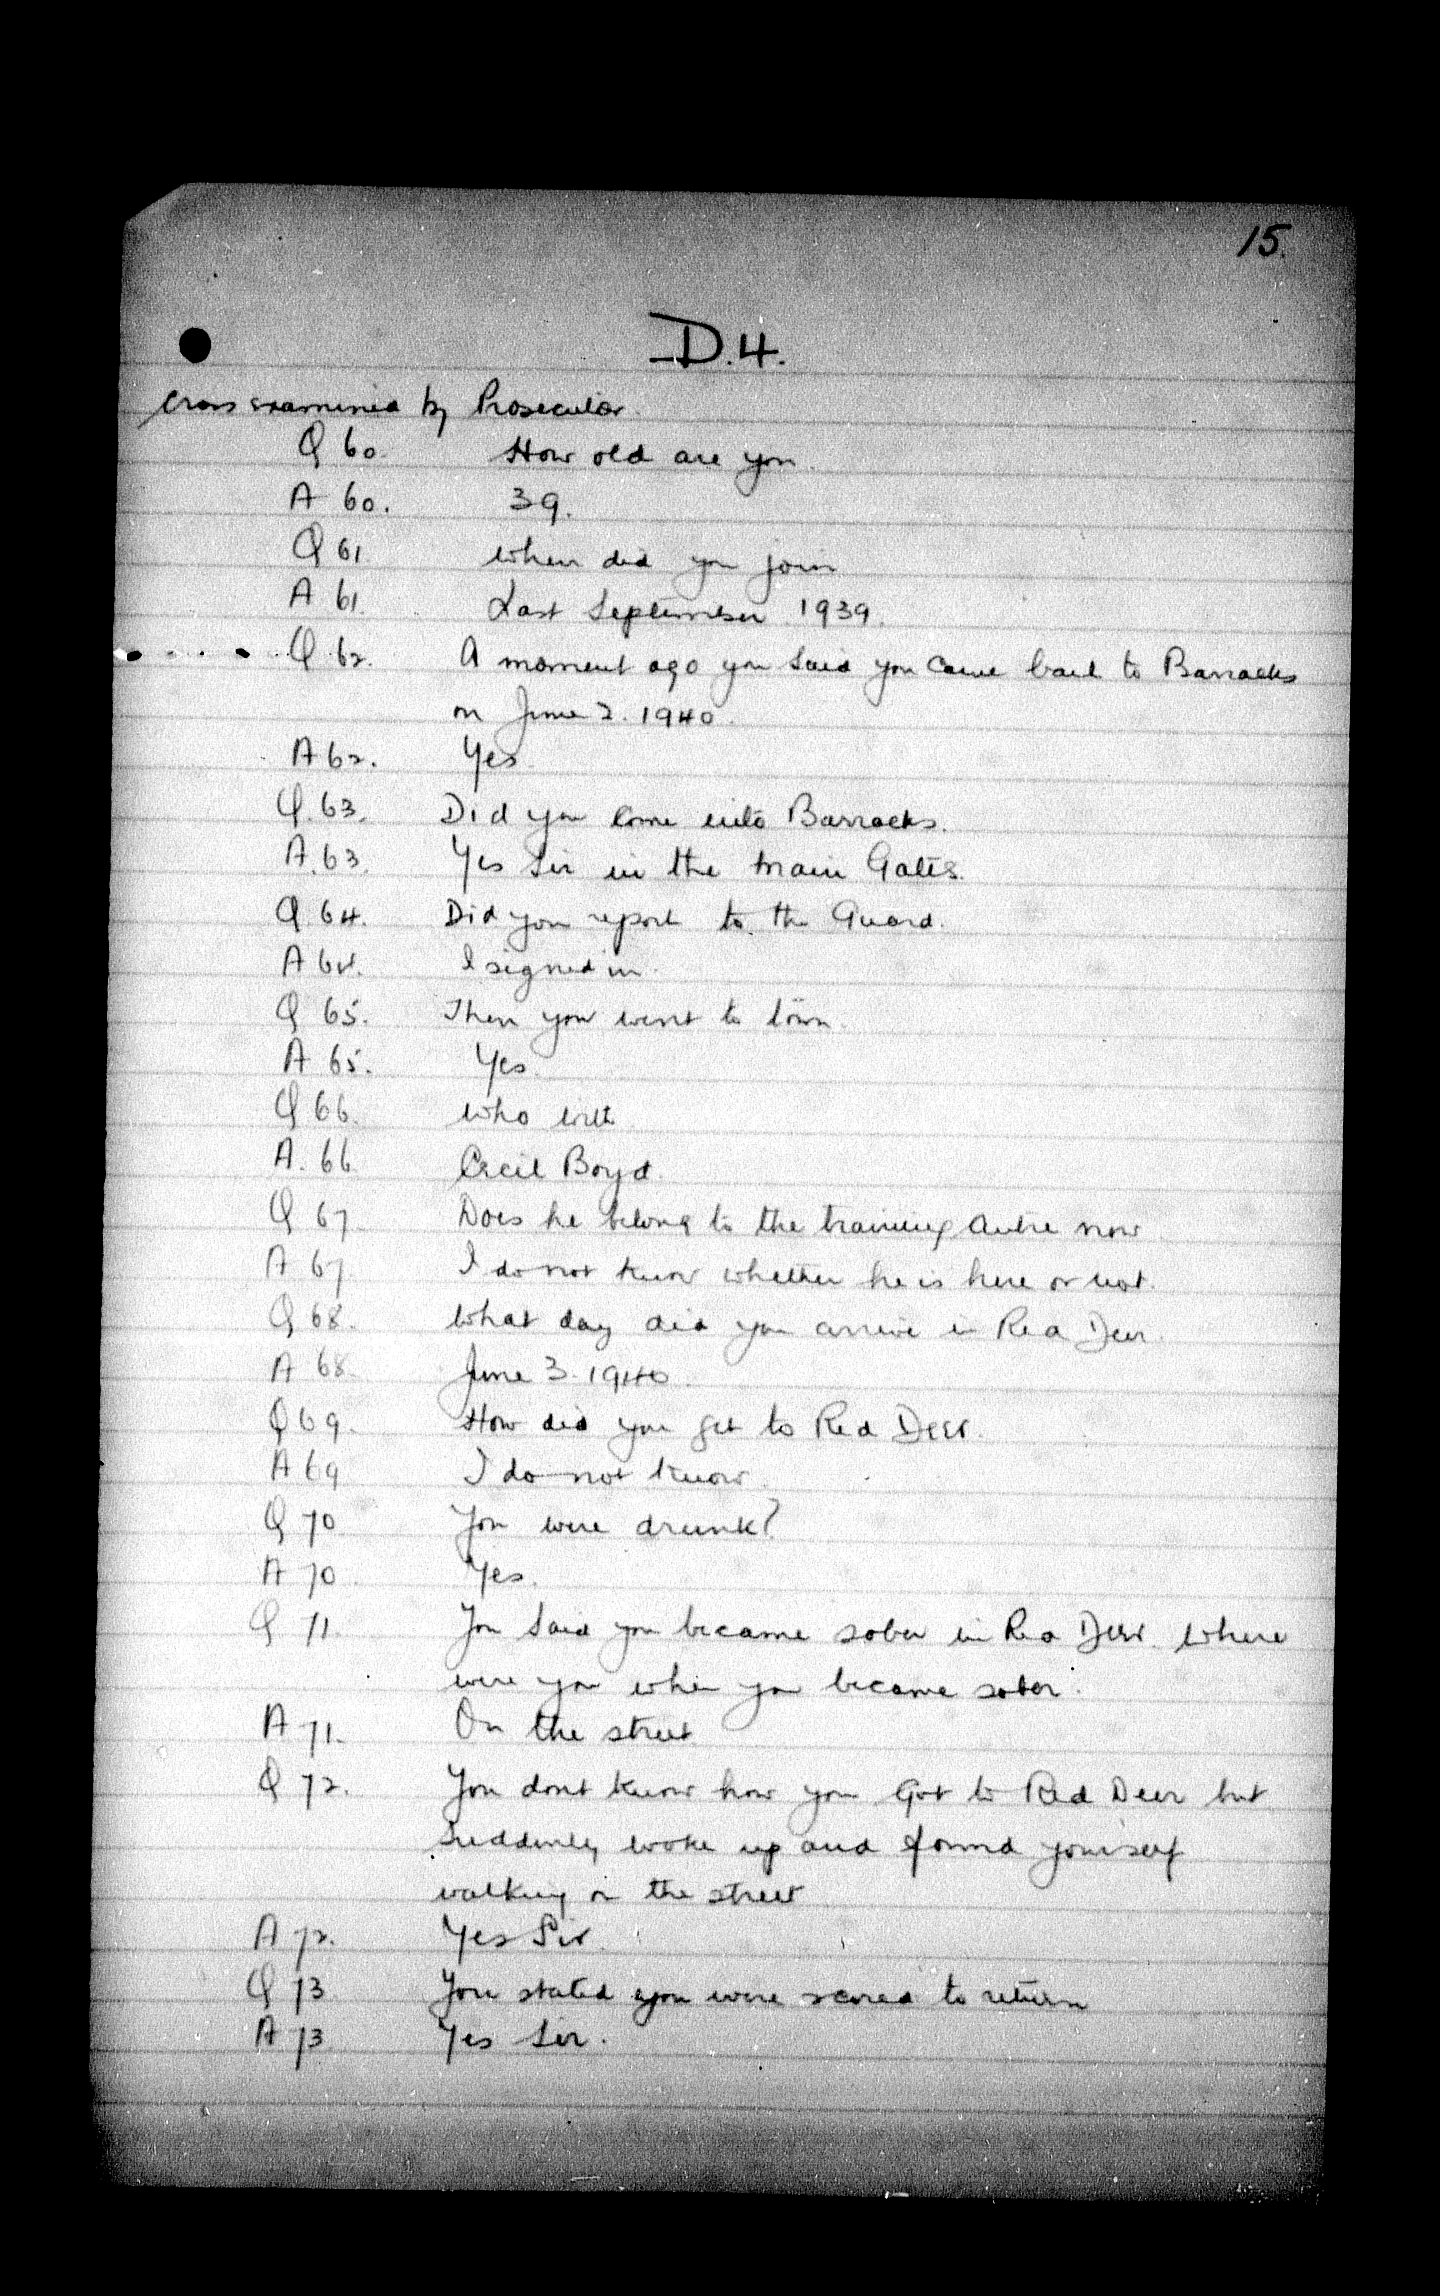 15.
D.4.
Cross examined by Prosecutor.
Q 60. How old are you.
A 60. 39.
Q 61. When did you join
A 61. Last September 1939.
Q 62. A moment ago you said you came back to Barracks
on June 2. 1940.
A 62. Yes.
Q. 63. Did you come into Barracks.
A. 63. Yes Sir in the Main Gates.
Q. 64. Did you report to the Guard.
A 64. I signed in.
Q 65. Then you went to town.
A 65. Yes.
Q 66. Who with
A. 66. Cecil Boyd.
Q 67. Does he belong to the training centre now
A 67. I do not know whether he is here or not.
Q 68. What day did you arrive in Red Deer.
A 68. June 3. 1940.
Q 69. How did you get to Red Deer.
A 69 I do not know.
Q 70 You were drunk?
A 70. Yes.
Q 71. You said you became sober in Red Deer. Where
were you when you became sober.
A 71. On the street
Q 72. You dont know how you got to Red Deer but
suddenly woke up and found yourself
walking on the street
A 72. Yes Sir.
Q 73 You stated you were scared to return
A 73. Yes Sir.